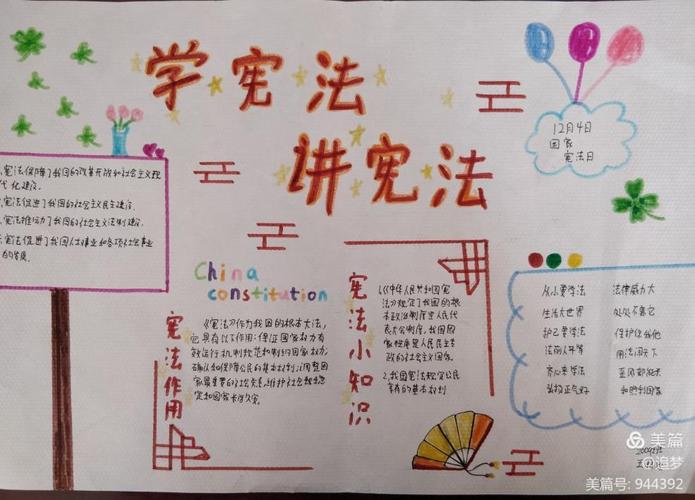 学宪法
讲宪法
12月4日
国家
宪法日
宪法保障了我国的改革开放和社会主义现
代化建设。
宪法促进了我国的社会主义民主建设。
宪法推动了我国的社会主义法制建设。
宪法促进了我国人权事业和各项社会事业
的发展。
China
constitution
宪法作用
《宪法》作为我国的根本大法,
它具有以下作用:保证国家权力有
效运行,规范和制约国家权力,
确认和保障公民的基本权利,调整国
家最重要的社会关系,维护社会稳定
和国家长治久安。
宪法小知识
1.《中华人民共和国宪
法》规定了我国的根
本政治制度是人民代
表大会制度,我国国
家性质是人民民主专
政的社会主义国家。
2.我国宪法规定公民
享有的基本权利
从小要学法 法律威力大
生活大世界 处处不离它
护己要学法 保护你我他
法前人平等 用法闯天下
齐心来学法
弘扬正气好 和晖利国家
美篇
@追梦
美篇号: 944392